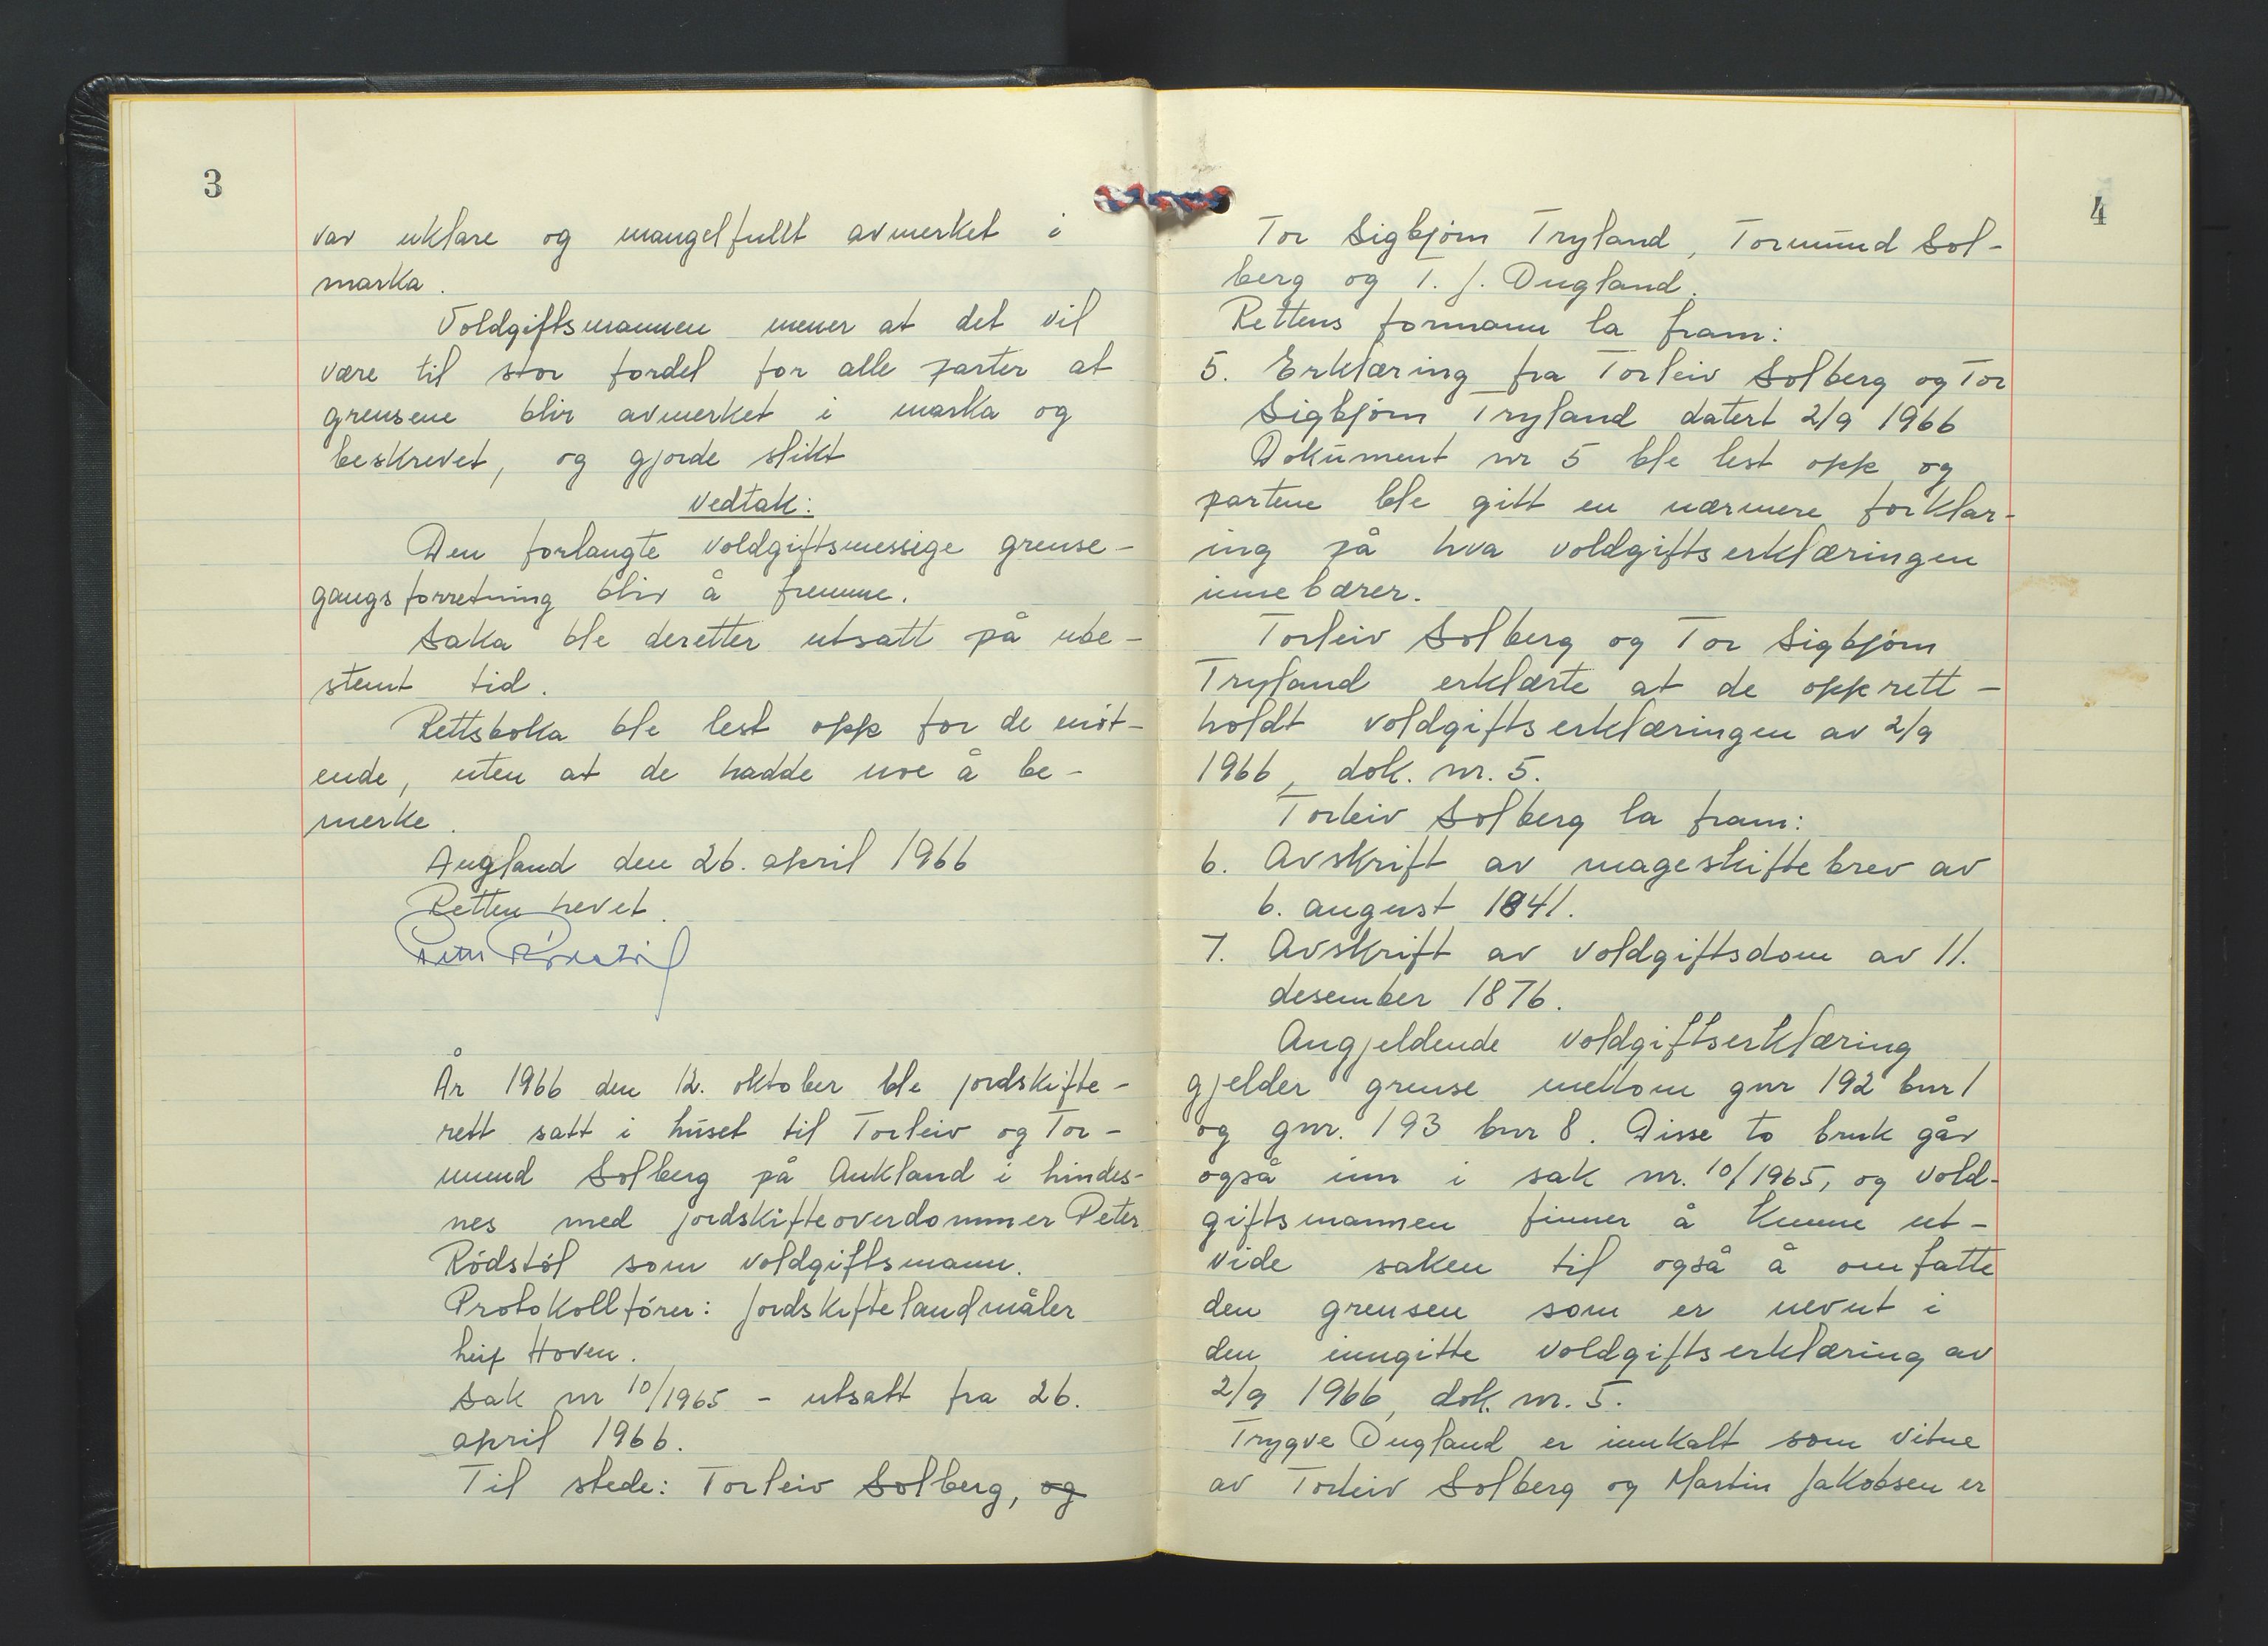 3
var uklare og mangelfullt avmerket i
marka.
Voldgiftsmannen mener at det vil
være til stor fordel for alle parter at
grensene blir avmerket i marka og
beskrevet, og gjorde slikt
Vedtak:
Den forlangte voldgiftsmessige grense-
gangsforretning blir å fremme.
Saka ble deretter utsatt på ube-
stemt tid.
Rettsboka ble lest opp for de møt-
ende, uten at de hadde noe å be-
merke.
Augland den 26. april 1966
Retten hevet.
År 1966 den 12. oktober ble jordskifte-
rett satt i huset til Torleiv og Tor-
mund Solberg på Aukland i Lindes-
nes med jordskifteoverdommer Peter
Rödstöl som voldgiftsmann.
Protokollfører: Jordskiftelandmåler
Leif Hoven.
Sak nr 10/1965 - utsatt fra 26.
april 1966.
Til stede: Torleiv Solberg, og
4
Tor Sigbjørn Tryland, Tormund Sol-
berg og T. J. Øugland.
Rettens formann la fram:
5. Erklæring fra Torleiv Solberg og Tor
Sigbjørn Tryland datert 2/9 1966
Dokument nr 5 ble lest opp og
partene ble gitt en nærmere forklar-
ing på hva voldgiftserklæringen
innebærer.
Torleiv Solberg og Tor Sigbjørn
Tryland erklærte at de opprett-
holdt voldgiftserklæringen av 2/9
1966, dok. nr. 5.
Torleiv Solberg la fram:
6. Avskrift av mageskiftebrev av
6. august 1841.
7. Avskrift av voldgiftsdom av 11.
desember 1876.
Angjeldende voldgiftserklæring
gjelder grense mellom gnr 192 bnr 1
og gnr. 193 bnr 8. Disse to bruk går
også inn i sak nr. 10/1965, og vold-
giftsmannen finner å kunne ut-
vide saken til også å omfatte
den grensen som er nevnt i
den inngitte voldgiftserklæring av
2/9 1966, dok. nr. 5.
Trygve Øugland er innkalt som vitne
av Torleiv Solberg og Martin Jakobsen er